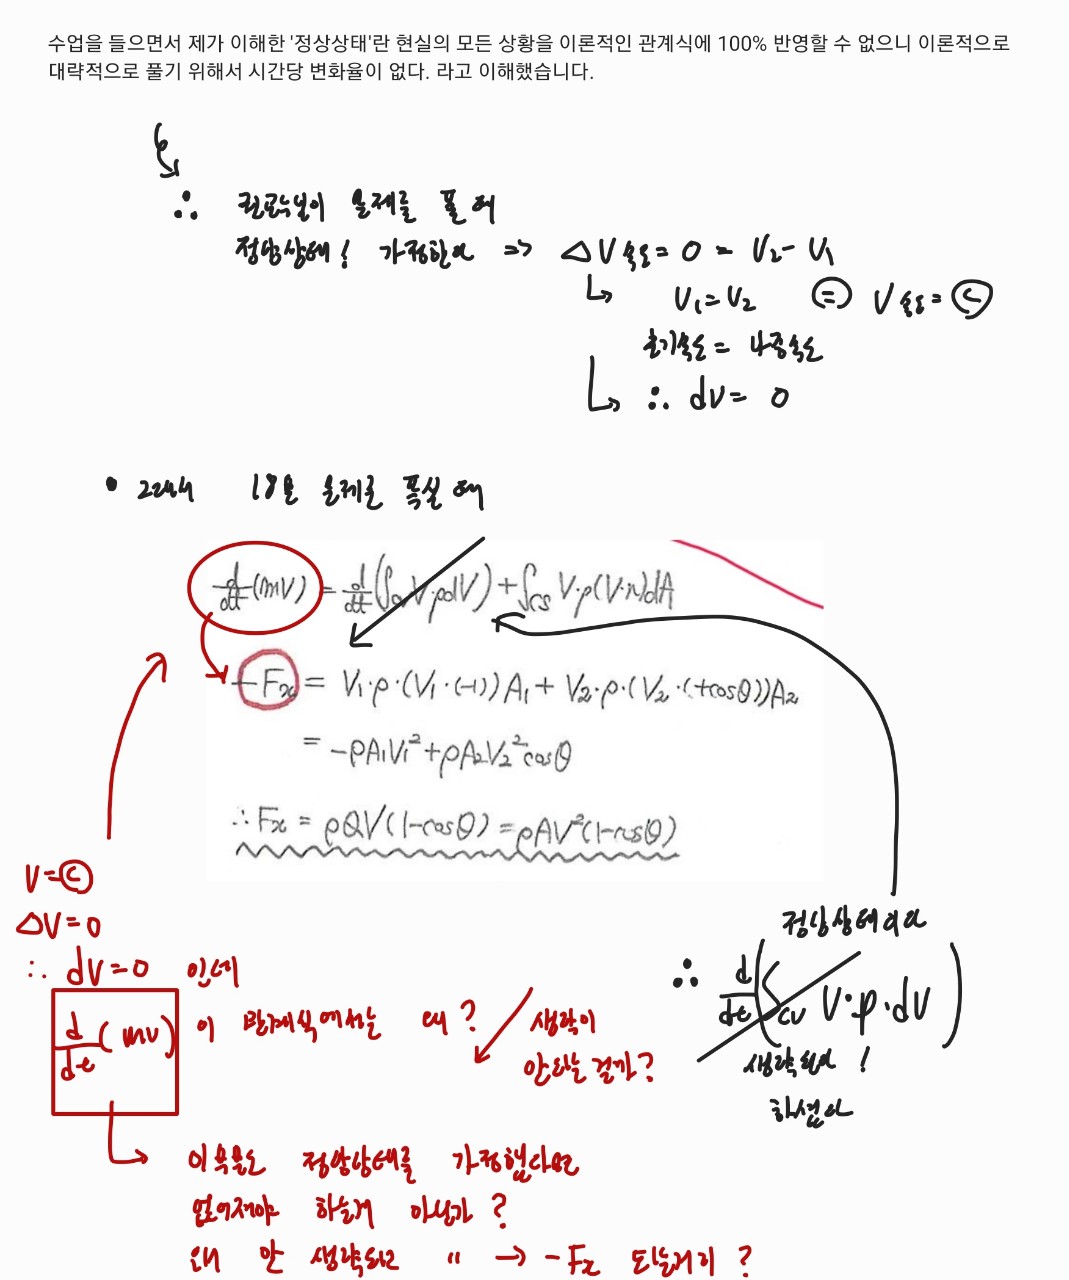 수업을 들으면서 제가 이해한 '정상상태'란 현실의 모든 상황을 이론적인 관계식에 100% 반영할 수 없으니 이론적으로
대략적으로 풀기 위해서 시간당 변화율이 없다. 라고 이해했습니다.
∴ 문제를 풀 때
정상상태! 가정한다 => △V속도 = 0 = V₂ - V₁
V₁ = V₂ ⊜ V속도 = ⓒ
초기속도 = 나중속도
∴ dV = 0
• 그래서 18번 문제를 푸실 때
d/dt(mV) = d/dt(∫cv V·ρdV) + ∫cs V·ρ(V·n)dA
-Fx = V₁·ρ·(V₁·(-1))A₁ + V₂·ρ·(V₂·(+cosθ))A₂
= -ρA₁V₁² + ρA₂V₂²cosθ
∴ Fx = ρQV(1-cosθ) = ρAV²(1-cosθ)
V=ⓒ
△V=0
∴ dV=0 인데
d/dt(mv) 이 관계식에서는 왜? 생략이
안되는 걸까?
정상상태이다
∴ d/dt(∫cv V·ρ·dV)
생략된다!
하셨다
이 부분도 정상상태를 가정했다면
없어져야 하는게 아닌가?
왜 안 생략되고 " → -Fx 되는거지?